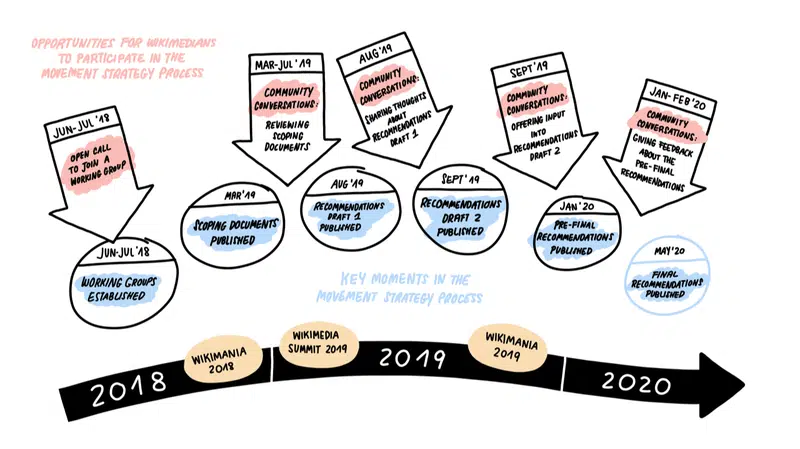 OPPORTUNITIES FOR WIKIMEDIANS
TO PARTICIPATE IN THE
MOVEMENT STRATEGY PROCESS
JUN-JUL '18
OPEN CALL
TO JOIN A
WORKING GROUP
MAR-JUL '19
COMMUNITY
CONVERSATIONS:
REVIEWING
SCOPING
DOCUMENTS
AUG '19
COMMUNITY
CONVERSATIONS:
SHARING THOUGHTS
ABOUT
RECOMMENDATIONS
DRAFT 1
SEPT '19
COMMUNITY
CONVERSATIONS:
OFFERING INPUT
INTO
RECOMMENDATIONS
DRAFT 2
JAN-FEB '20
COMMUNITY
CONVERSATIONS:
GIVING FEEDBACK
ABOUT THE
PRE-FINAL
RECOMMENDATIONS
JUN-JUL '18
WORKING GROUPS
ESTABLISHED
MAR '19
SCOPING DOCUMENTS
PUBLISHED
AUG '19
RECOMMENDATIONS
DRAFT 1
PUBLISHED
SEPT '19
RECOMMENDATIONS
DRAFT 2
PUBLISHED
JAN '20
PRE-FINAL
RECOMMENDATIONS
PUBLISHED
MAY '20
FINAL
RECOMMENDATIONS
PUBLISHED
KEY MOMENTS IN THE
MOVEMENT STRATEGY PROCESS
2018
WIKIMANIA
2018
WIKIMEDIA
SUMMIT 2019
2019
WIKIMANIA
2019
2020